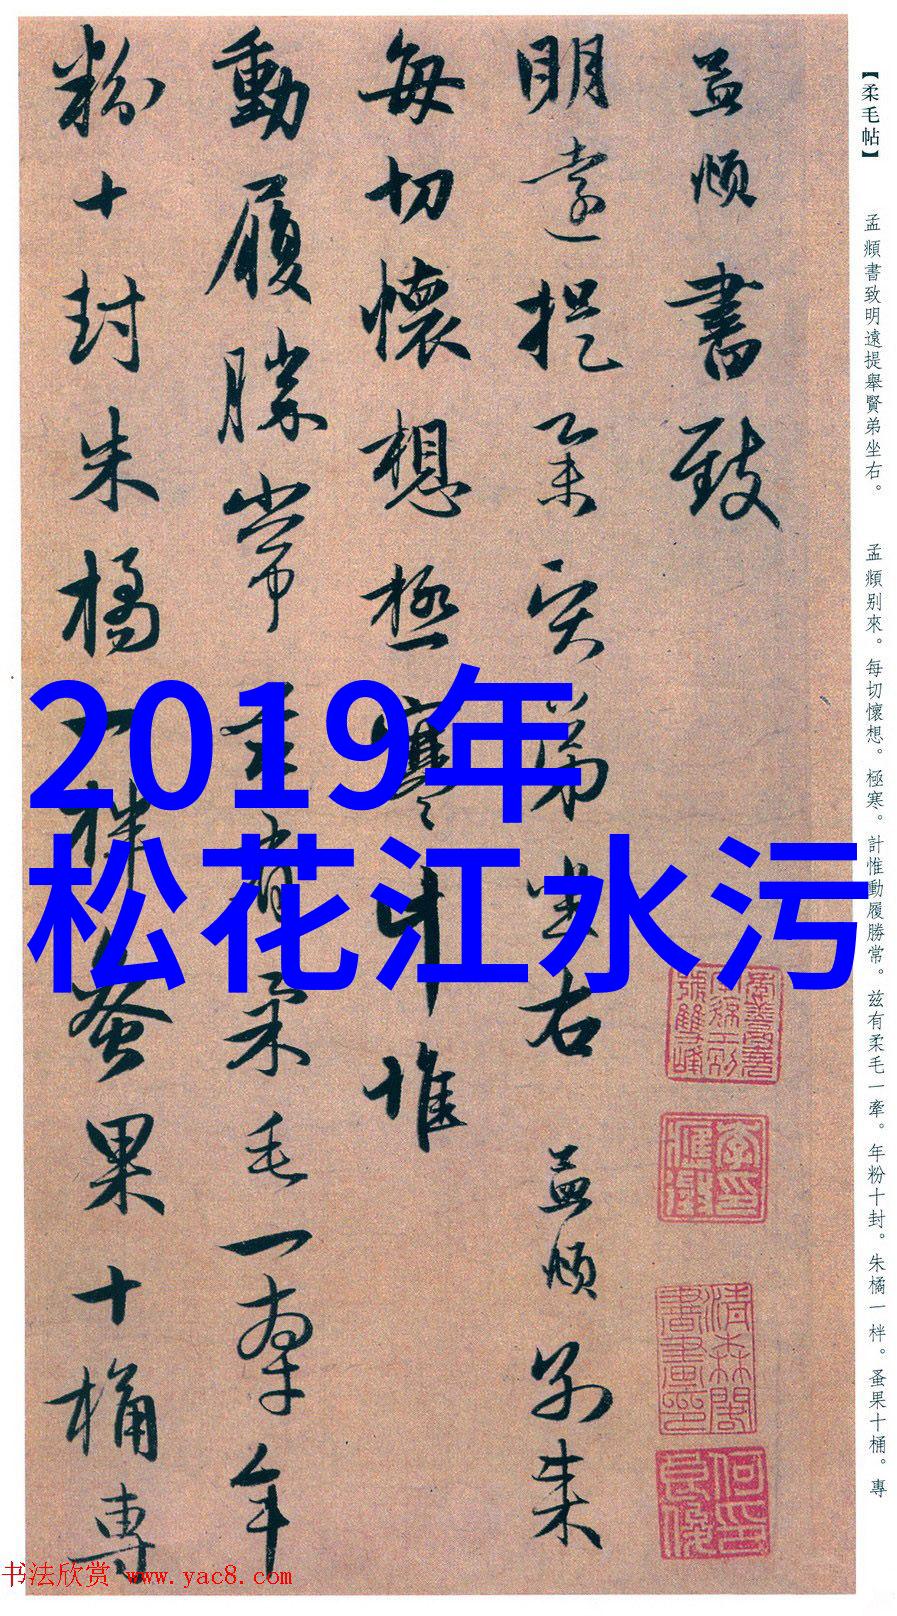 【柔毛帖】
孟頫書致明遠提舉賢弟坐右。
孟頫别來。每切懷想。極寒。計惟動履勝常。兹有柔毛一牽。年粉十封。朱橘一柈。蚤果十桶。專
孟頫書致
明遠提舉賢弟坐右 孟頫别來
每切懷想極寒計惟
動履勝常兹有柔毛一牽年
粉十封朱橘一柈蚤果十桶專
2019年
松花江水污
书法欣赏 www.yac8.com